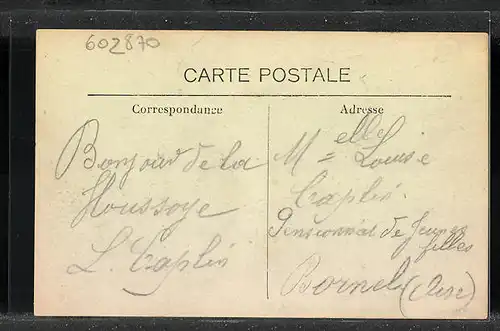 602870
CARTE POSTALE
Correspondance
Bonjour de la
Houssoye
L. Caplin
Adresse
Melle Louise
Caplin
Pensionnat de Jeunes
filles
Bornel (Oise)